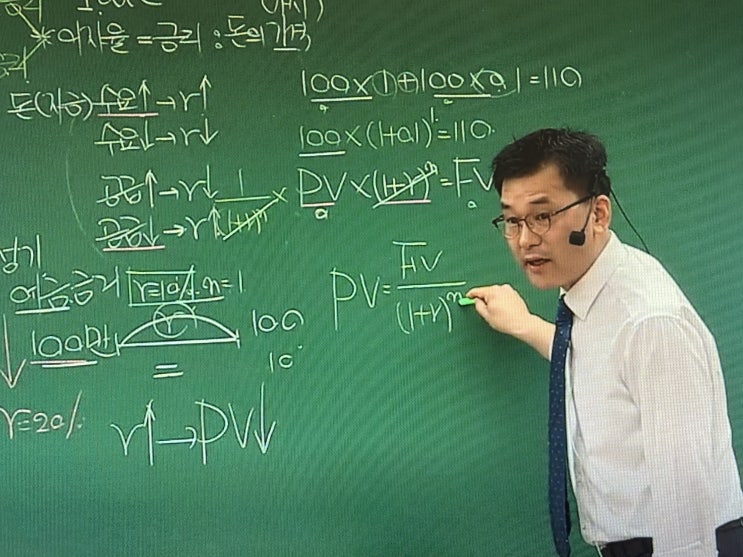 이자율=금리:돈의 가격
돈(자금) 수요↑→r↑
수요↓→r↓
공급↑→r↓
공급↓→r↑
100×1+100×0.1=110
100×(1+0.1)¹=110
1/(1+r)ⁿ × PV×(1+r)ⁿ=FV
예금금리 r=10%. n=1
PV=FV/(1+r)ⁿ
100만 100
10
r=20%
r↑→PV↓